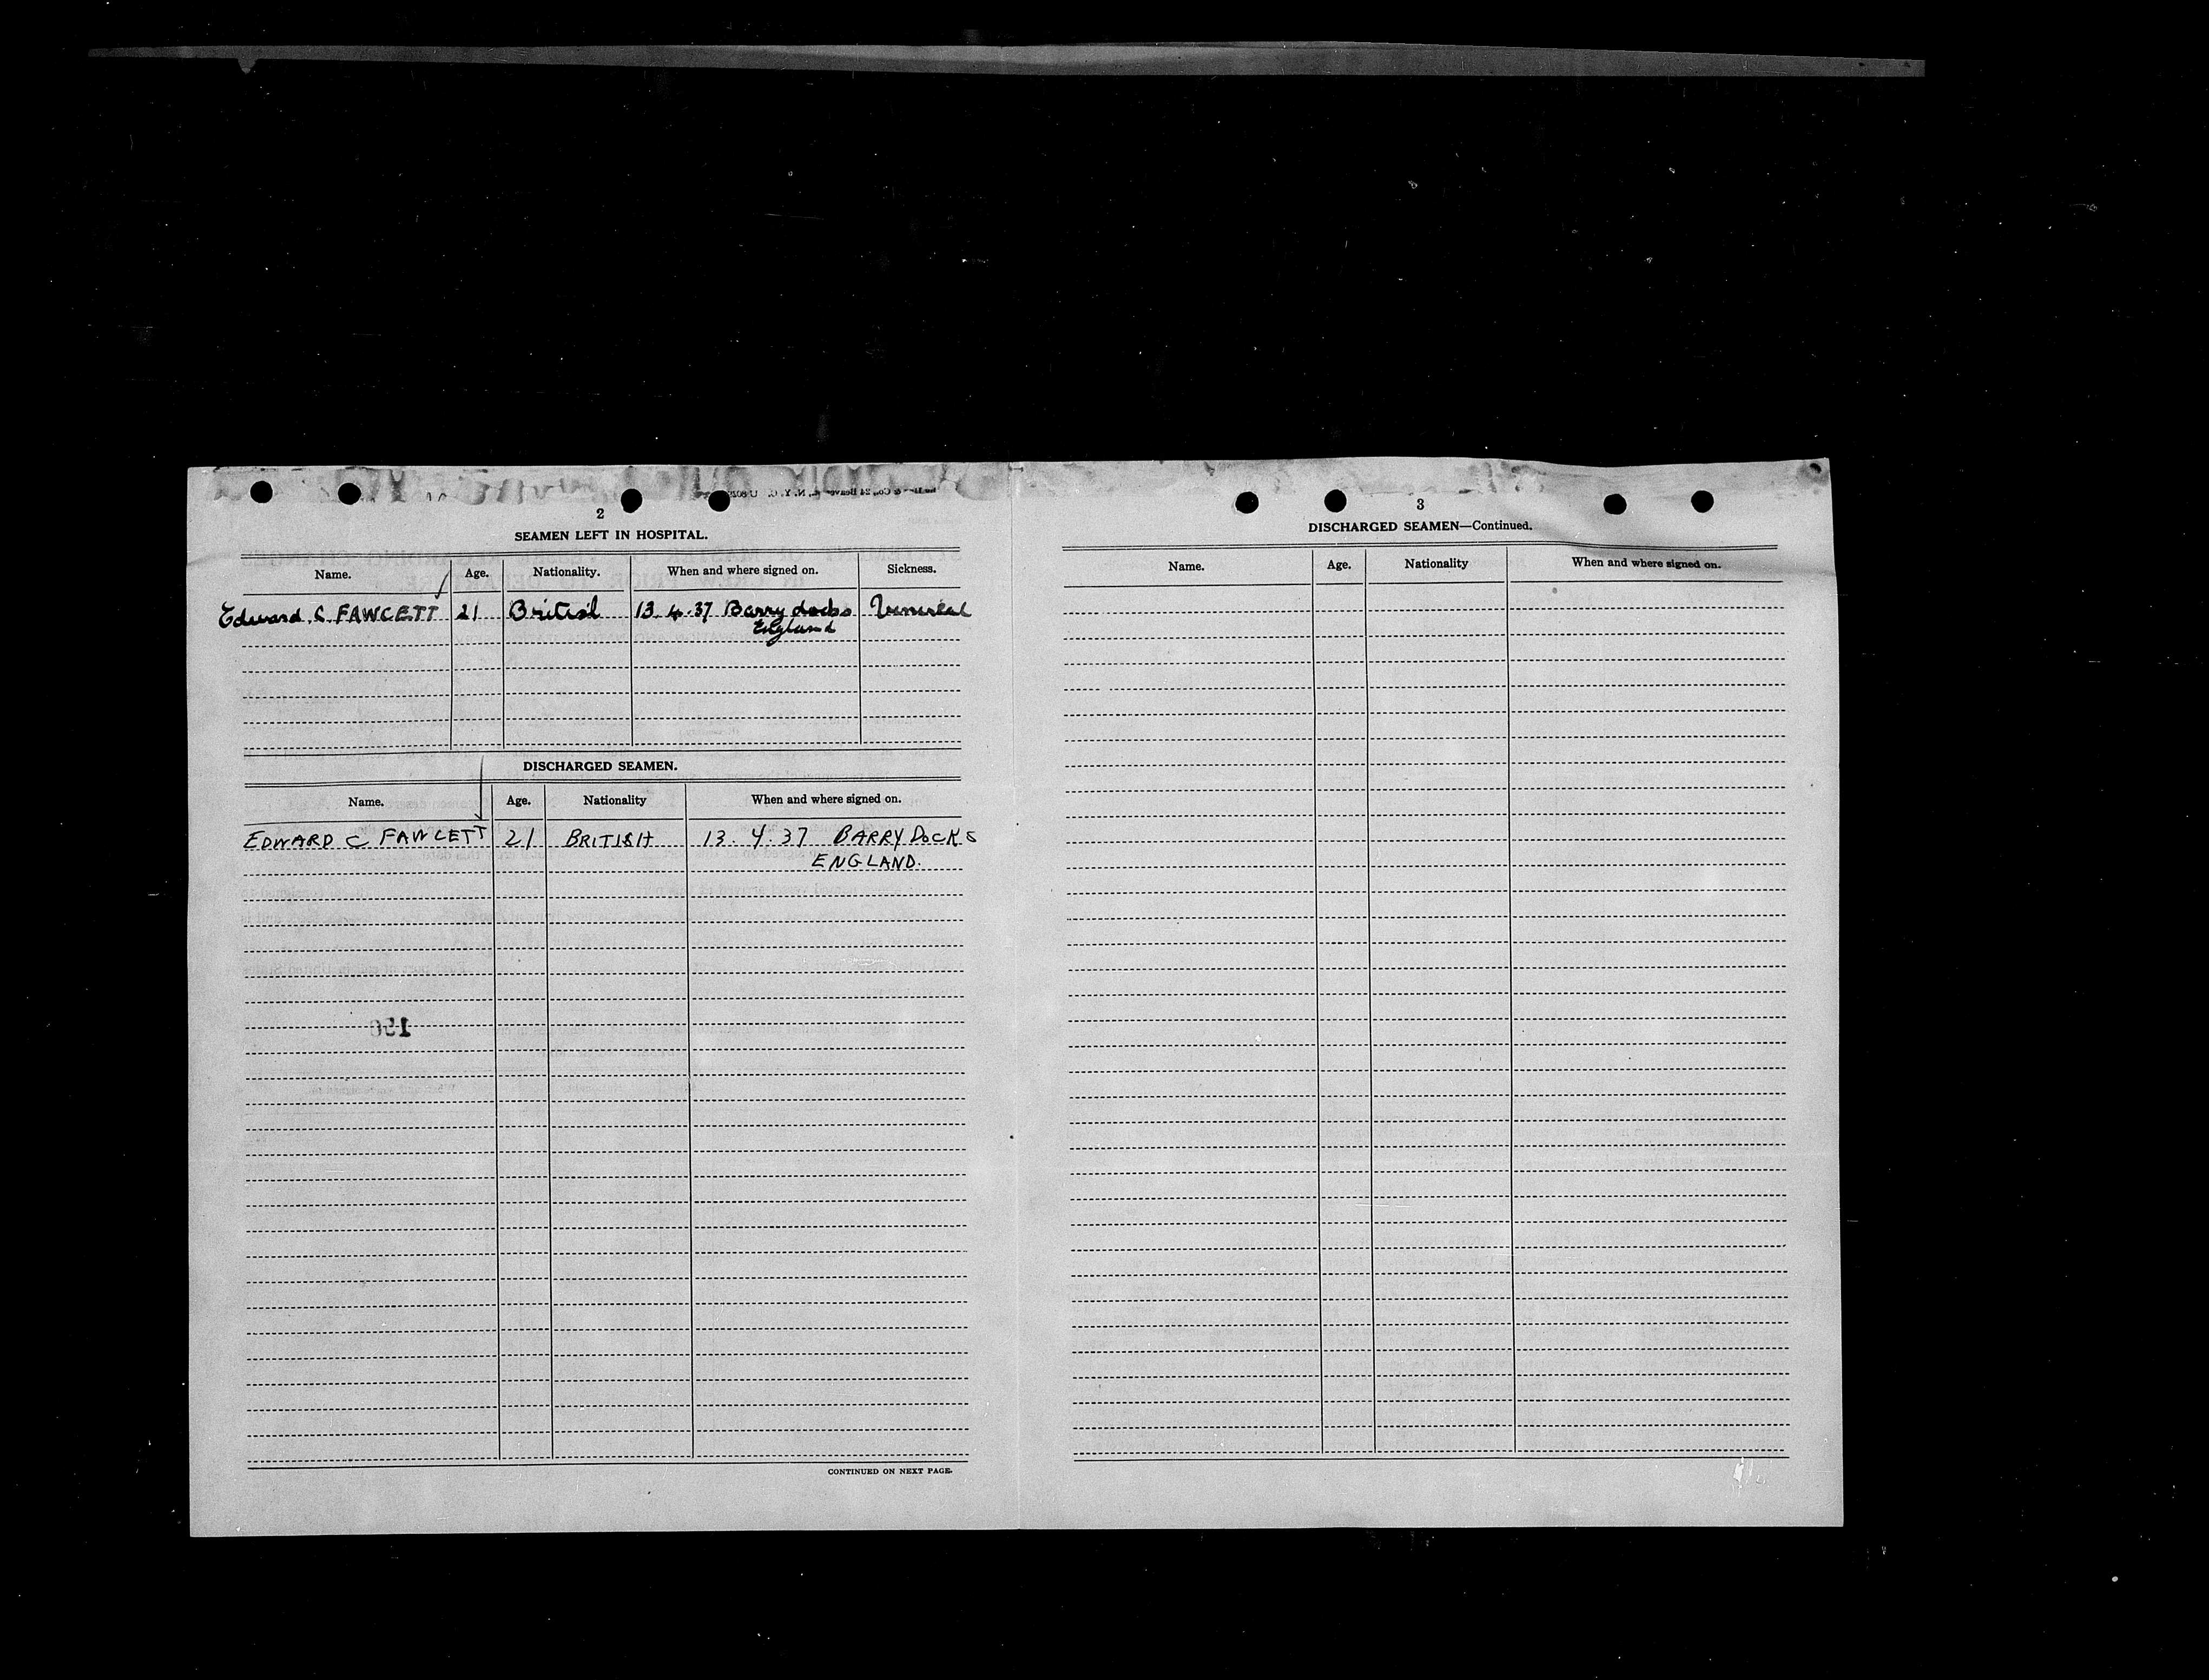 2
SEAMEN LEFT IN HOSPITAL.
Name. Age. Nationality. When and where signed on. Sickness.
Edward C FAWCETT 21 British 13.4.37 Barry docks Venereal
England
DISCHARGED SEAMEN.
Name. Age. Nationality When and where signed on.
EDWARD C FAWCETT 21 BRITISH 13.4.37 BARRY DOCKS
ENGLAND.
CONTINUED ON NEXT PAGE.
3
DISCHARGED SEAMEN—Continued.
Name. Age. Nationality When and where signed on.